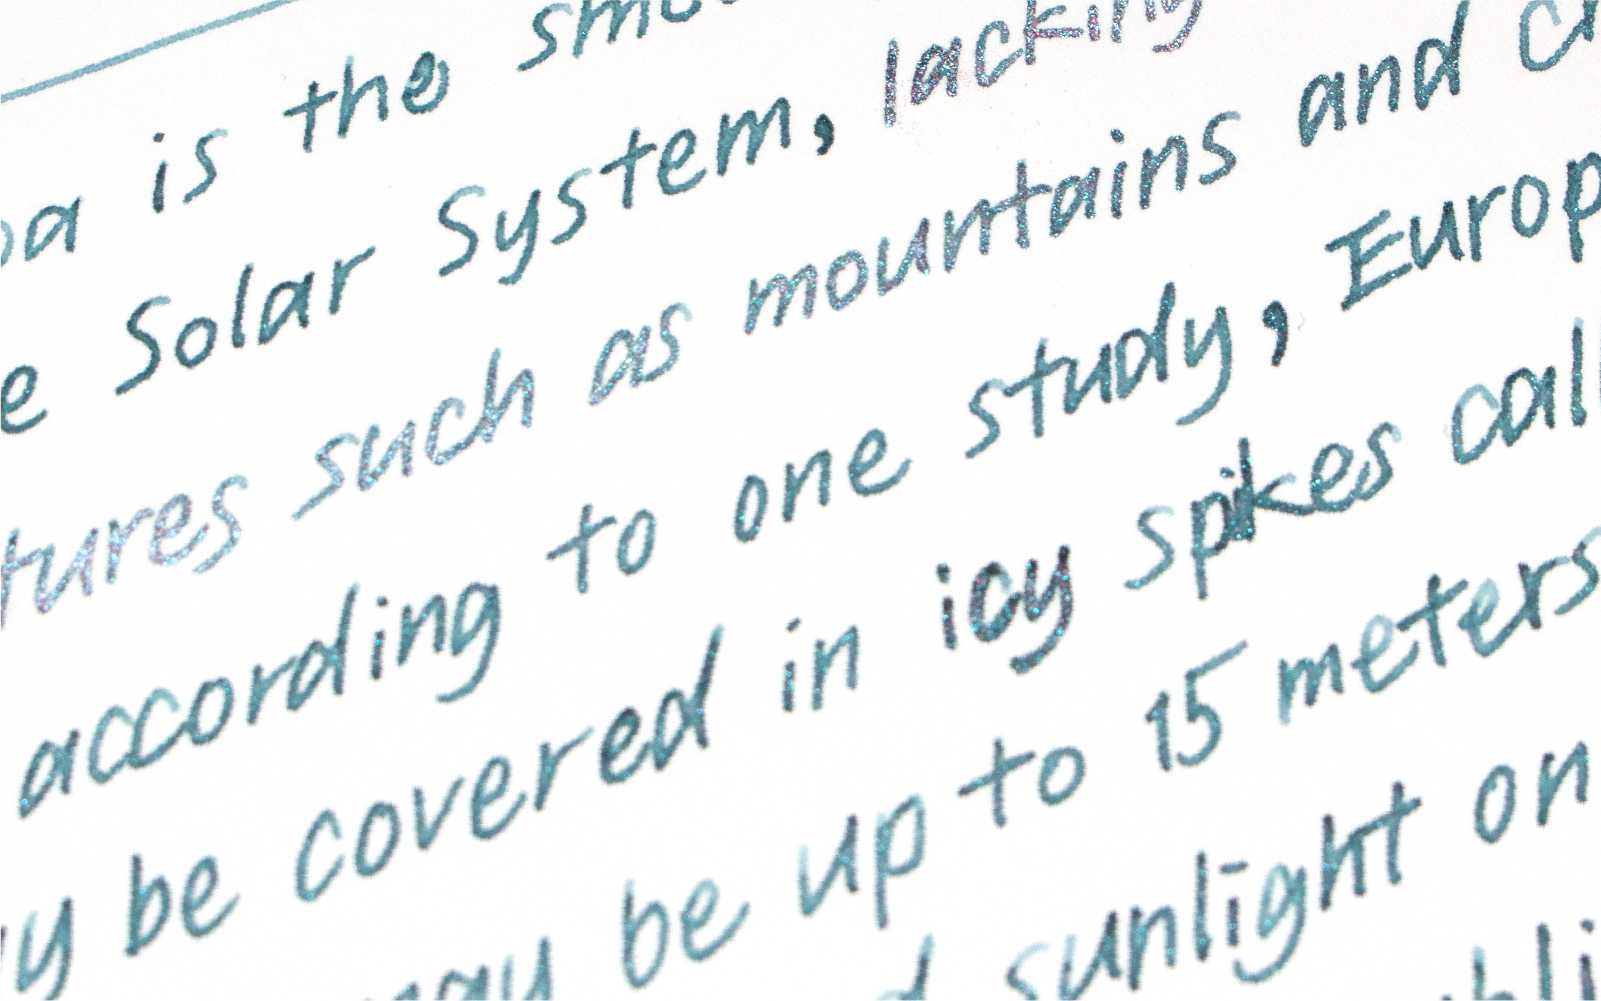 is the
e Solar System, lacking
tures such as mountains and
according to one study, Europ
y be covered in icy spikes call
may be up to 15 meters
sunlight on